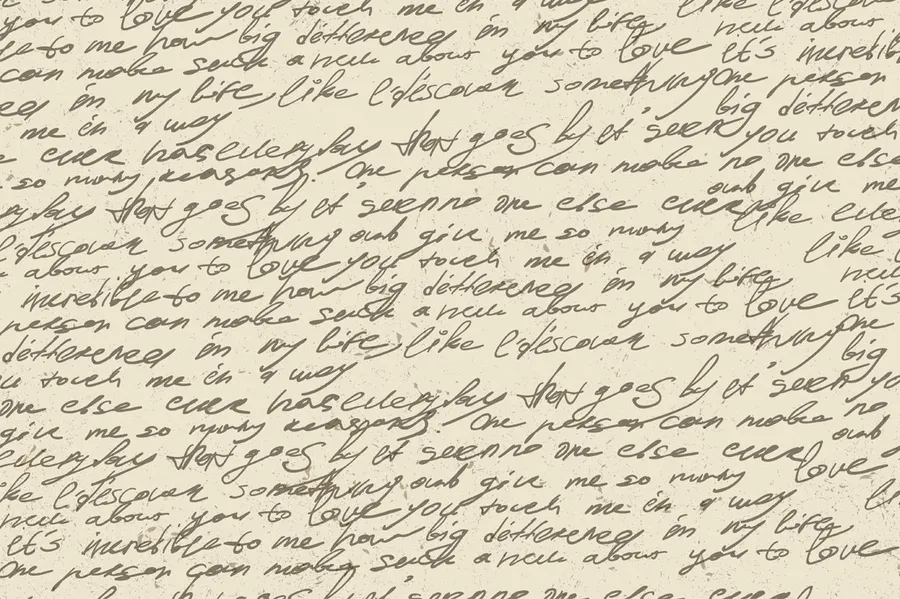 you to love you touch me in a way like I discover
to me how big differences in my life about
can make such a new about you to love It's incredible
in my life, like I discover something One person
me in a way big
ever has every day that goes by it's seem you touch
so many reasons. One person can make no one else
day that goes by it seem no one else ever and give me
I discover something and give me so many like
about you to love you touch me in a way like
incredible to me how big differences in my life
person can make such a new about you to love It's
differences in my life, like I discover something One
touch me in a way big
one else ever has every day that goes by it's seem you
give me so many reasons. One person can make no
every day that goes by it seem no one else ever and
like I discover something and give me so many love
new about you to love you touch me in a way
It's incredible to me how big differences in my life
One person can make such a new about you to love